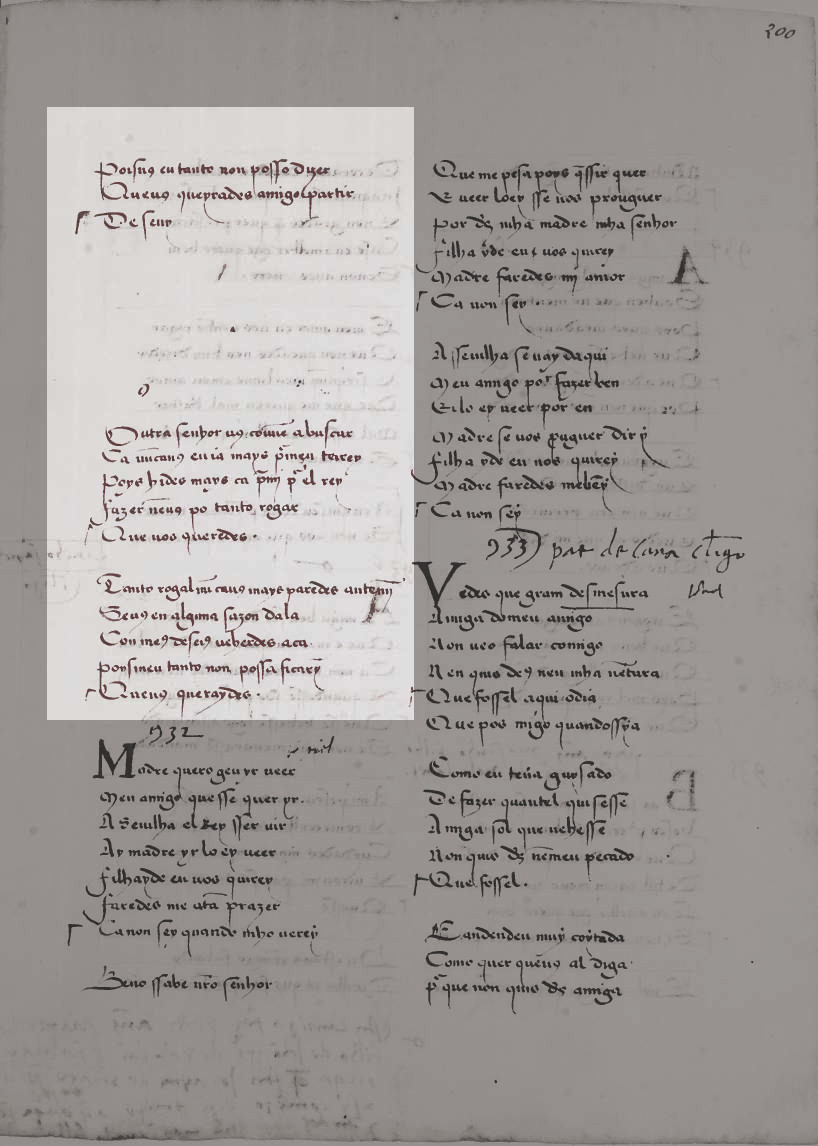 200
Poisuꝯ eu tanto non posso dizer
Que uꝯ queyrades amigo partir
De seuir
Outra senhor uꝯ cōuē a buscar
Ca nūca uꝯ eu ia mays
Poys hides mays ca p̄ mī p̄ el rey
fazer neuꝯ po tanto rogar
Que uos queredes.
Tanto rogal nūcauꝯ mays paredes ante mī
Seuꝯ en alguna sazon dala
Con meꝯ deseiꝯ ueherdes aca
poys me u tanto non possa ficar
Que uꝯ queraydes.
932
Madre quero geu yr veer
Meu amigo que sse quer yr.
A Seuilha el Rey sser uir
Ay madre yr lo ey veer
filha yde eu uos quirey
faredes me atā prazer
Ca non sey quando mho uerey
Beno ssabe nr̄o senhor
Que me pesa poys q̄ssir quer
E veer loey sse uos prouguer
Por dꝯ mha madre mha senhor
filha yde eu uos quirey
Madre faredes mī amor
Ca non sey
A sseuilha se uay daqui
Meu amigo por fazer ben
E ilo ey veer por en
Madre se uos prouguer dir y
filha yde eu uos quirey
Madre faredes me bē y
Ca non sey
933
Vedes que gram desmesura
Amiga do meu amigo
Non ueo falar comigo
Nen quis deꝯ neu mha uētura
Que fossel aqui o dia
Que pos migo quando ssya
Como eu teña guysado
De fazer quantel quisesse
Amiga sol que uehesse
Non quis dꝯ nē meu pecado
Que fossel.
E andendeu muy coytada
Como quer que uꝯ al diga
p̄ que non quis dꝯ amiga